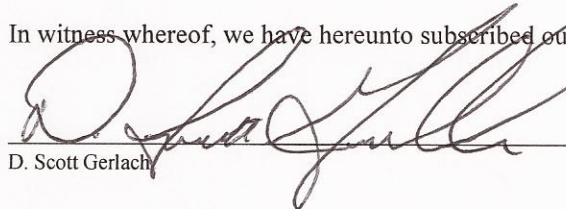 In witness whereof, we have hereunto subscribed ou
D. Scott Gerlach
D. Scott Gerlach